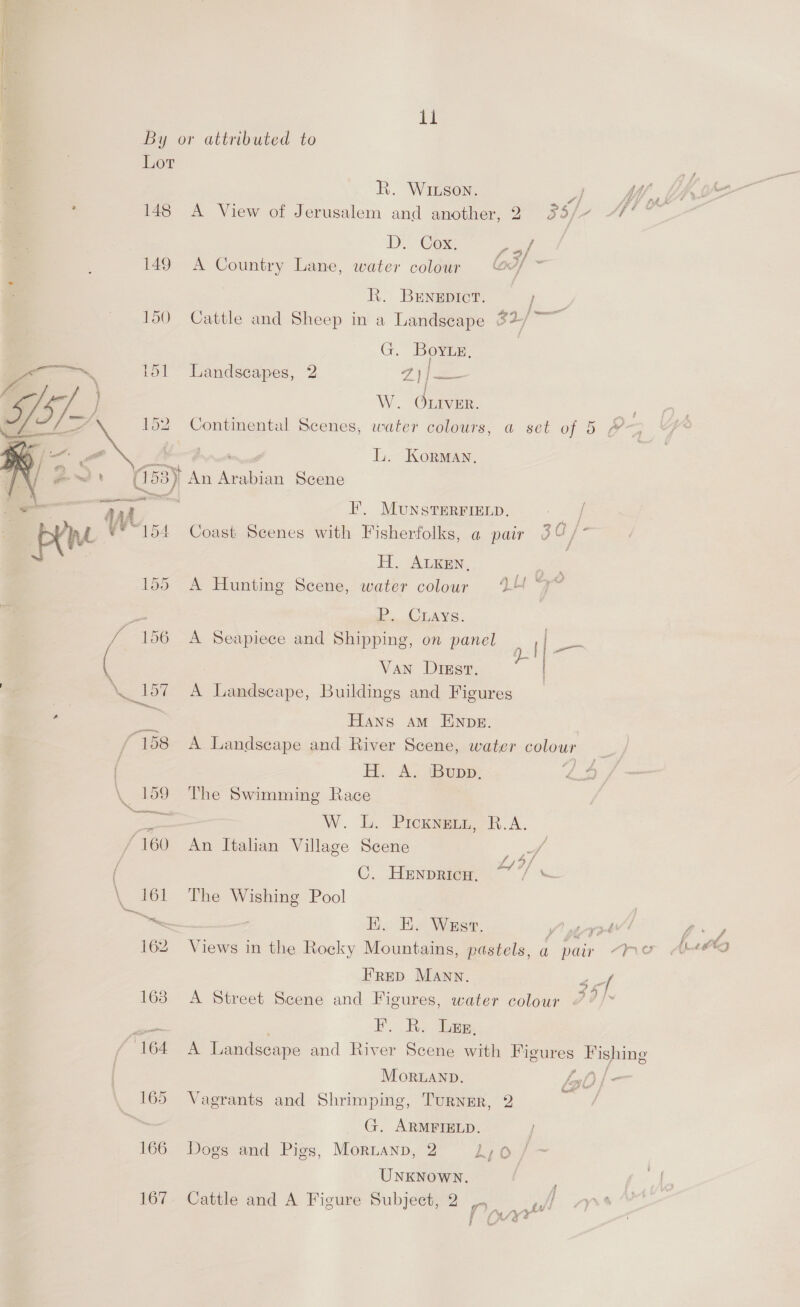 11
By or attributed to
Lot
R. Wilson.
148 A View of Jerusalem and another, 2 35/-
D. Cox.
149 A Country Lane, water colour
R. Benedict.
150 Cattle and Sheep in a Landscape 32/-
G. Boyle.
151 Landscapes, 2 21/-
W. Oliver.
152 Continental Scenes, water colours, a set of 5
L. Korman.
(153) An Arabian Scene
F. Munsterfield.
154 Coast Scenes with Fisherfolks, a pair 30/-
H. Alken.
155 A Hunting Scene, water colour
P. Clays.
156 A Seapiece and Shipping, on panel
Van Diest.
157 A Landscape, Buildings and Figures
Hans am Ende.
158 A Landscape and River Scene, water colour
H. A. Budd.
159 The Swimming Race
W. L. Picknell, R.A.
160 An Italian Village Scene
C. Hendrich.
161 The Wishing Pool
E. E. West.
162 Views in the Rocky Mountains, pastels, a pair
Fred Mann.
163 A Street Scene and Figures, water colour 35/-
F. R. Lee.
164 A Landscape and River Scene with Figures Fishing
Morland.
165 Vagrants and Shrimping, Turner, 2
G. Armfield.
166 Dogs and Pigs, Morland, 2
Unknown.
167 Cattle and A Figure Subject, 2